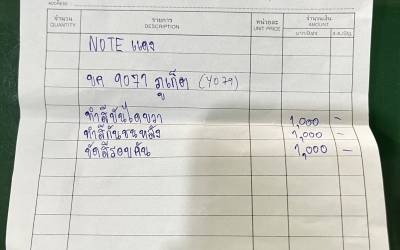 ADDRESS
จำนวน รายการ หน่วยละ จำนวนเงิน
QUANTITY DESCRIPTION UNIT PRICE AMOUNT
NOTE แดง
ขค 9077 ภูเก็ต (4079)
ทำสีบันไดขวา 1,000 -
ทำสีกันชนหลัง 1,000 -
ขัดสีรอบคัน 1,000 -